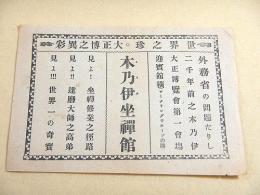 世界之珍。大正博之異彩
外務省の問題たりし
二千年前之木乃伊
大正博覽會第一會塲
迎賓舘橫
木乃伊坐禪舘
見よ！坐禪修業之徑路
見よ！！達磨大師之高弟
見よ！！！世界一の奇寶